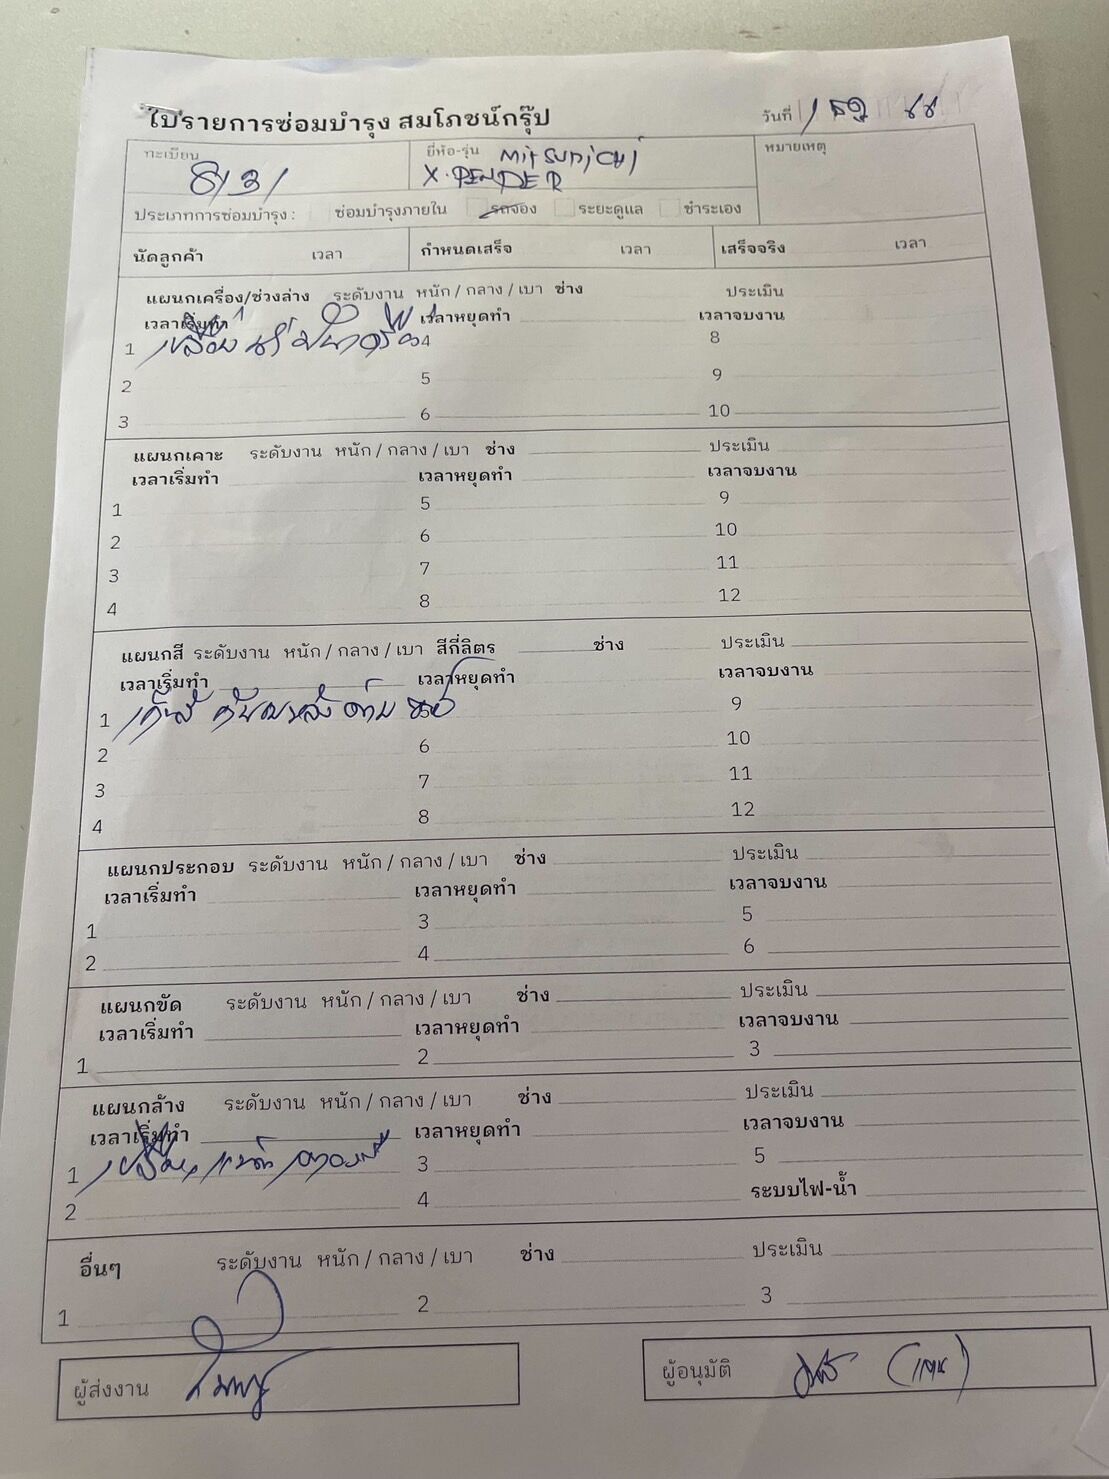 ใบรายการซ่อมบำรุง สมโภชน์กรุ๊ป
วันที่ 1
ทะเบียน
ยี่ห้อ-รุ่น
X-PENDER
หมายเหตุ
ประเภทการซ่อมบำรุง : ซ่อมบำรุงภายใน รถจอง ระยะดูแล ชำระเอง
นัดลูกค้า เวลา กำหนดเสร็จ เวลา เสร็จจริง เวลา
แผนกเครื่อง/ช่วงล่าง ระดับงาน หนัก / กลาง / เบา ช่าง ประเมิน
เวลาเริ่มทำ เวลาหยุดทำ เวลาจบงาน
1 4 8
2 5 9
3 6 10
แผนกเคาะ ระดับงาน หนัก / กลาง / เบา ช่าง ประเมิน
เวลาเริ่มทำ เวลาหยุดทำ เวลาจบงาน
1 5 9
2 6 10
3 7 11
4 8 12
แผนกสี ระดับงาน หนัก / กลาง / เบา สีกี่ลิตร ช่าง ประเมิน
เวลาเริ่มทำ เวลาหยุดทำ เวลาจบงาน
1 9
2 6 10
3 7 11
4 8 12
แผนกประกอบ ระดับงาน หนัก / กลาง / เบา ช่าง ประเมิน
เวลาเริ่มทำ เวลาหยุดทำ เวลาจบงาน
1 3 5
2 4 6
แผนกขัด ระดับงาน หนัก / กลาง / เบา ช่าง ประเมิน
เวลาเริ่มทำ เวลาหยุดทำ เวลาจบงาน
1 2 3
แผนกล้าง ระดับงาน หนัก / กลาง / เบา ช่าง ประเมิน
เวลาเริ่มทำ เวลาหยุดทำ เวลาจบงาน
1 3 5
2 4 ระบบไฟ-น้ำ
อื่นๆ ระดับงาน หนัก / กลาง / เบา ช่าง ประเมิน
1 2 3
ผู้ส่งงาน
ผู้อนุมัติ